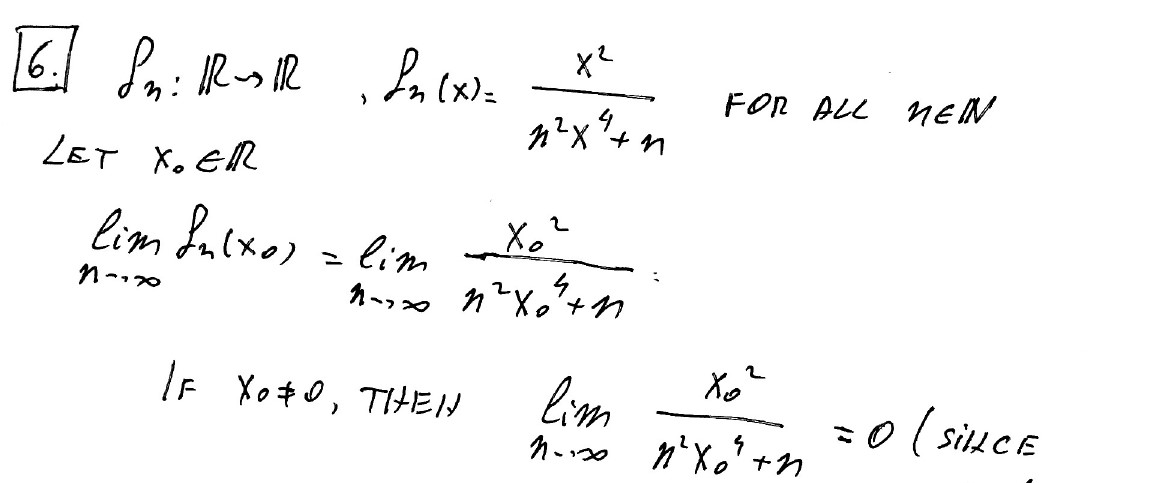 6. fn: ℝ→ℝ, fn(x) = x²/(n²x⁴+n) FOR ALL n∈ℕ
LET x₀∈ℝ
lim n→∞ fn(x₀) = lim n→∞ x₀²/(n²x₀⁴+n) :
IF x₀≠0, THEN lim n→∞ x₀²/(n²x₀⁴+n) = 0 (SINCE